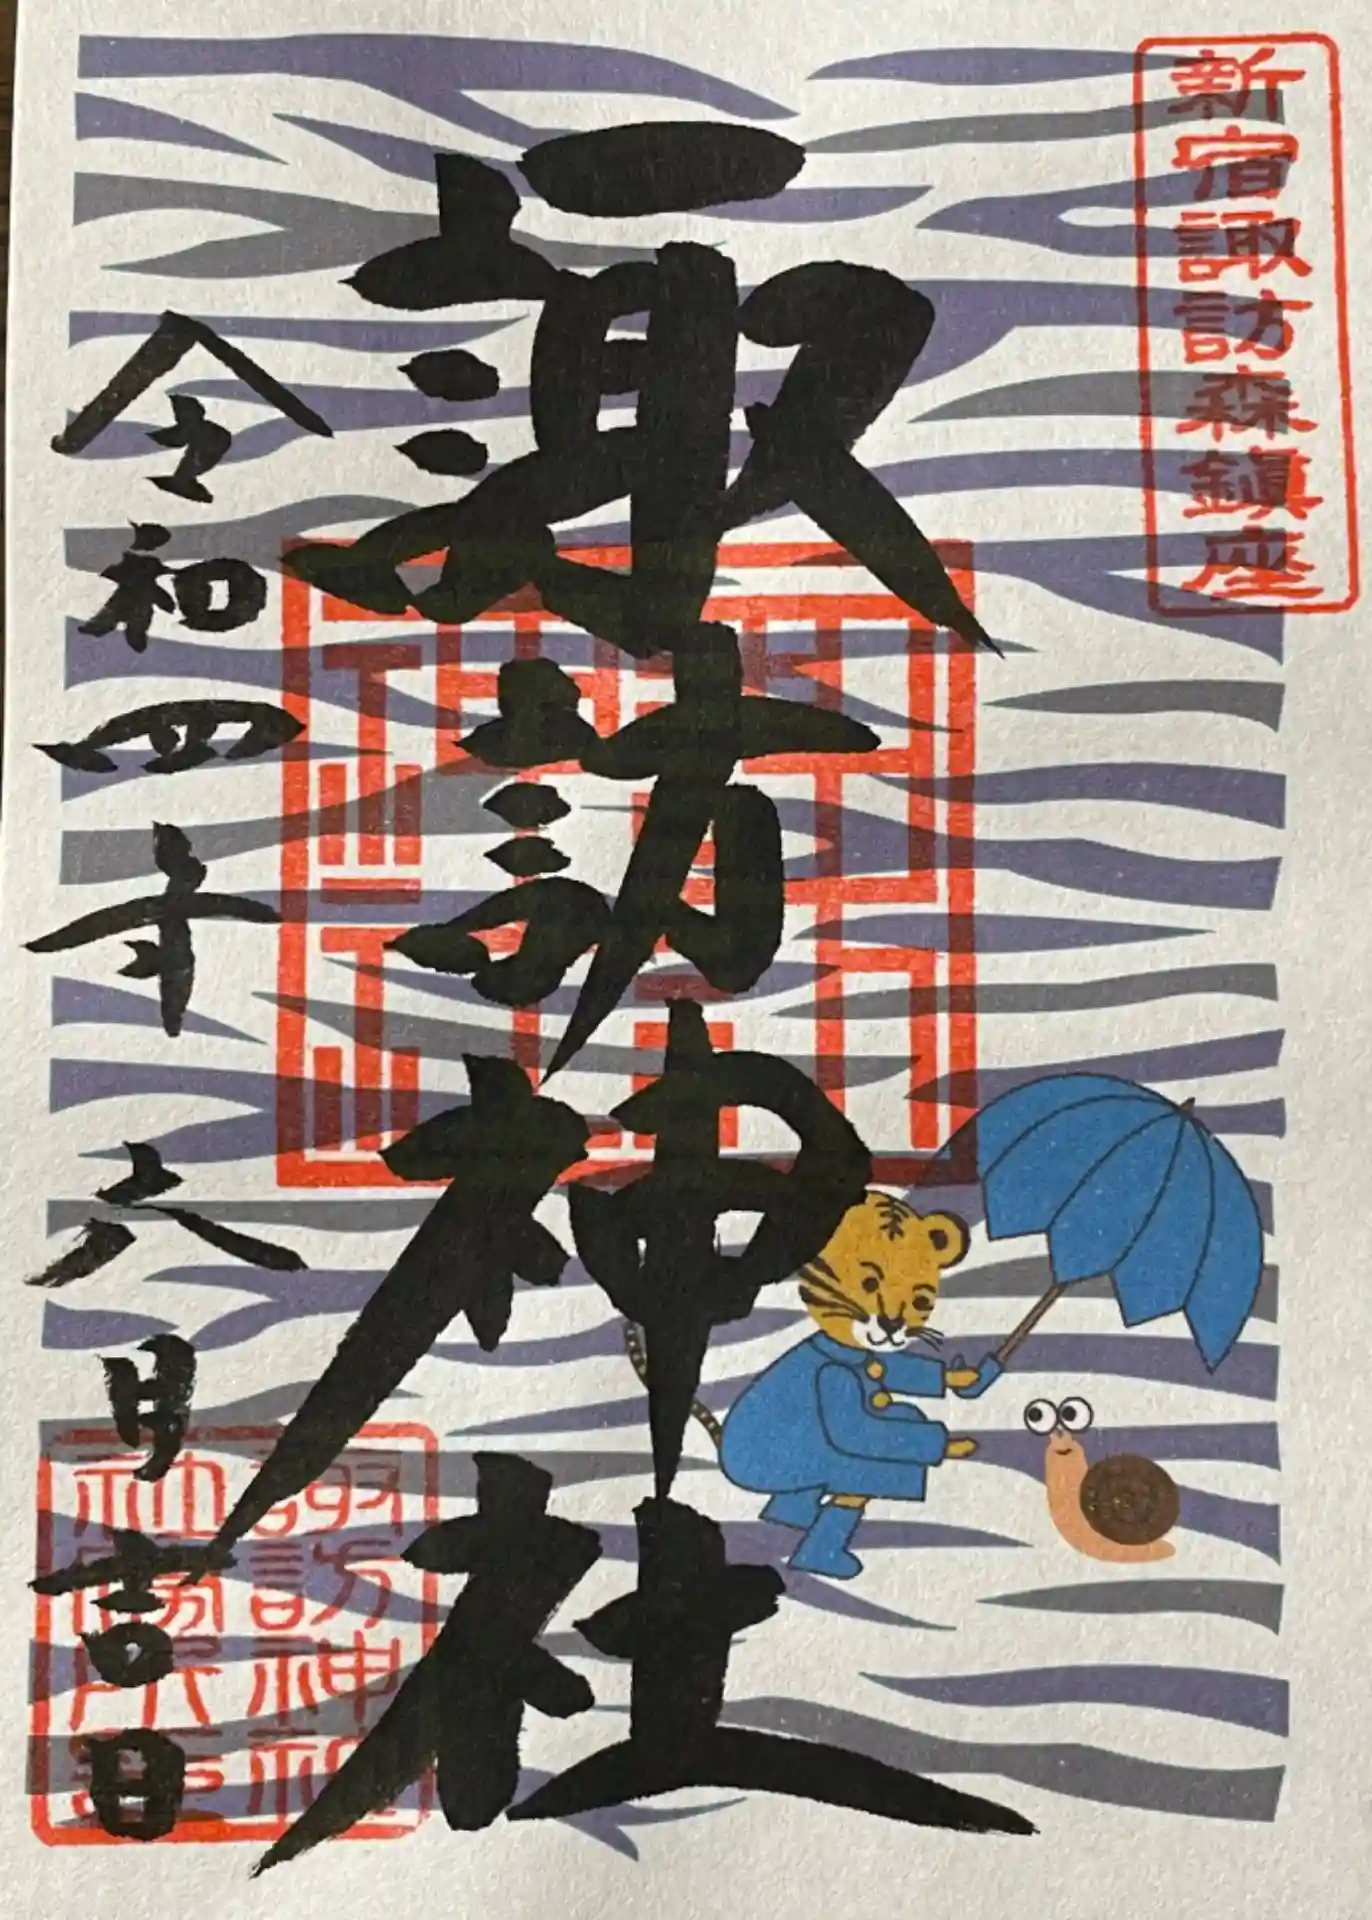 新宿諏訪森鎮座
諏訪神社
令和四年六月吉日
諏訪神社